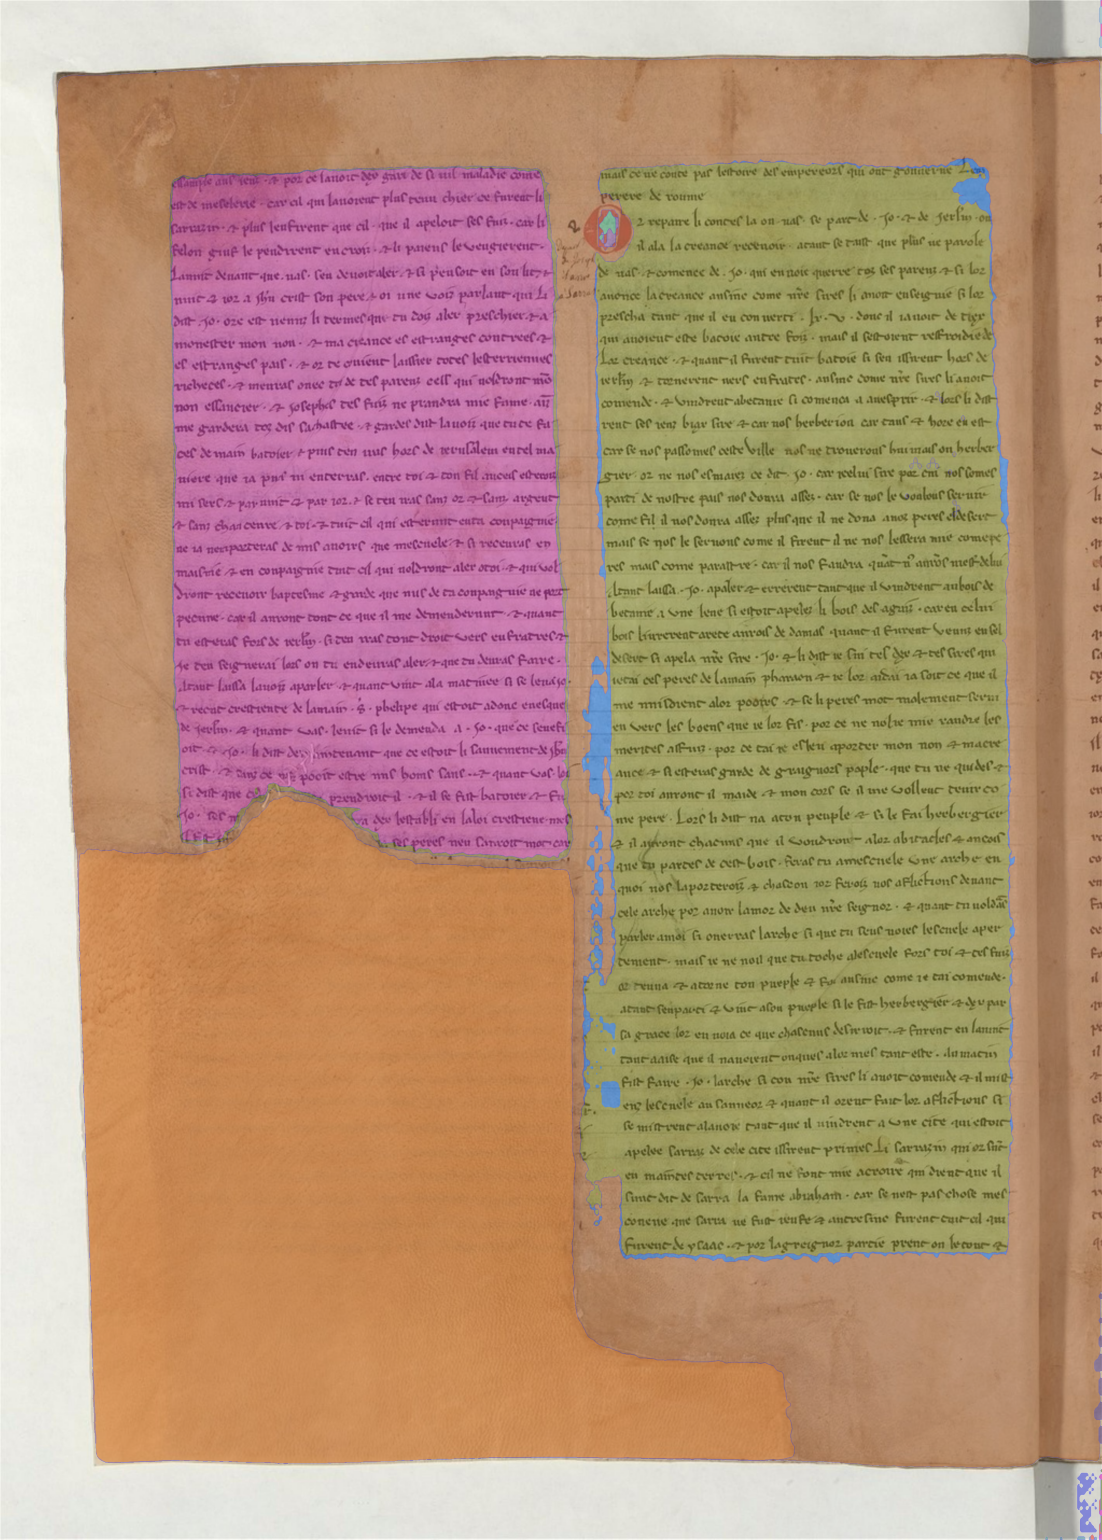 essample ans ienz · ⁊ por ce lauoit dex guari de si uil maladie come
est de meselerie · car cil qui lauoient plus tenu chier ce furent li
sarrazin · ⁊ plus lenfirent que cil · que il apeloit ses fiuz · car li
felon giuf le pendirent en croiz · ⁊ li paiens le vengierent ·
Lanuit deuant que · uas · sen deuoit aler · ⁊ si pensoit en son lit ⁊
nuit ⁊ ior a ihu crist son pere ⁊ oi une voiz parlant qui li
dist · Jo · ore est uenuz li termes que tu doiz aler preschier ⁊ a
monester mon non · ⁊ ma creance es estranges contrees ⁊
es estranges pais · ⁊ or te couient laissier totes les terriennes
richeces · ⁊ menras ouec toi de tes parenz ceus qui uoldront mo
non essaucier · ⁊ Josephes tes fiuz ne prandra mie fame · ainz
me gardera toz dis sa chastee · ⁊ gardes dist la uoiz que tu te fa
ces demain batoier ⁊ puis ten uas hors de ierusalem en tel ma
niere que ia puis ni enterras · entre toi ⁊ ton fil
mi sers ⁊ par nuit ⁊ par ior · ⁊ se ten iras sanz or ⁊ sanz argent
⁊ sanz chauceure ⁊ toi ⁊ tuit cil qui esterunt en ta conpaignie
ne ia nenporteras de mis auoirs que mescuele ⁊ si receuras en
maisnie ⁊ en conpaignie tuit cil qui uoldront aler o toi ⁊ qui uol
dront receuoir baptesme ⁊ garde que nus de ta conpangnie ne port
pecune · car il auront tout ce que il me demenderunt · ⁊ quant
tu esteras fors de ierlm · si ten iras tout droit vers eufratres ⁊
ie ten seignerai lors on tu endeuras aler ⁊ que tu deuras faire ·
Atant laissa la uoiz a parler · ⁊ quant vint a la matinee si se leua Jo ·
⁊ recut crestiente de la main · s · phelipe qui estoit adonc euesque
de ierlm · ⁊ quant vas · le uit si le demenda a · Jo · que ce senefi
oit ⁊ · Jo · li dist maintenant que ce estoit li sauuement de ihu
crist · ⁊ sanz ce ne pooit estre nus homs saus · ⁊ quant vas lo
si dist que prendroit il · ⁊ il se fist batoier ⁊ fu
Jo · ses dex lestabli en la loi crestiene mes
ses peres nen sauoit mot car
mais ce ne conte pas lestoire des empereors qui ont gouuerne Len
perere de roume
2 repaire li contes la on uas · se part de · Jo · ⁊ de Jerlm · ou
il ala la creance receuoir · atant se taist que plus ne parole
de uas · ⁊ comence de · Jo · qui enuoie querre toz ses parenz ⁊ si lor
anonce la creance ansinc come nre sires li auoit enseignie si lor
prescha tant que il en conuerti · lx · v · donc il i auoit de tiex
qui auoient este batoie autre foiz · mais il sestoient reffroidie de
Lor creance · ⁊ quant il furent tuit batoie si sen issirent hors de
ierlm ⁊ tornerent uers eufrates · ansinc come nre sires li auoit
comende · ⁊ vindrent a betanie si comenca a anesprir · ⁊ lors li dist
rent ses ienz biax sire ⁊ car nos herberion car tans ⁊ hore en est
car se nos passomes ceste ville nos ne trouerons hui mais on herber
gier · or ne nos esmaiez ce dit · Jo · car icelui sire por cui nos somes
parti de nostre pais nos donra assez · car se nos le voulons seruir
come fil il nos donra assez plus que il ne dona a noz peres el desert
mais se nos le seruons come il firent il ne nos lessera mie come pe
res mais come parastre · car il nos faudra
Atant laissa · Jo · a paler ⁊ errerent tant que il vindrent au bois de
betanie a vne leue si estoit apelez li bois des aguiz · car en celui
bois liurerent arete au rois de damas · quant il furent venuz en sel
desert si apela nre sire · Jo · ⁊ li dist ie sui tes dex ⁊ tes sires qui
ietai ces peres de la main pharaon ⁊ ie lor aidai ia soit ce que il
me nuisoient a lor pooirs ⁊ se li peres mot malement serui
en vers les boens que ie lor fis · por ce ne nobli mie randre les
merites as fiuz · por ce tai ie esleu a porter mon non ⁊ ma cre
ance ⁊ si esteras garde de graignors pople · que tu ne quides ⁊
por toi auront il maide ⁊ mon cors se il me vollent tenir co
me pere · Lors li dist ua a ton peuple ⁊ si le fai herbergier
⁊ il auront chacuns que il voudront a lor abitacles ⁊ ancois
que tu partes de cest bois · feras tu a mescuele vne arche en
quoi uos la porteroiz ⁊ chascon ior feroiz uos aflictions deuant
cele arche por auoir lamor de deu nre seignor · ⁊ quant tu voldras
parler a moi si ouerras larche si que tu seus uoies lescuele aper
tement · mais ie ne uoil que tu toche a lescuele fors toi ⁊ tes fiuz
or ten ua ⁊ atorne ton pueple ⁊ fai ansinc come ie tai comende ·
atant sen parti ⁊ vint a son pueple si le fist herbergier ⁊ dex par
sa grace lor enuoia ce que chascuns desirroit · ⁊ furent en la nuit
tant a aise que il nauoient onques a lor mes tant este · au matin
fist faire · Jo · larche si con nre sires li auoit comende ⁊ il mist
enz lescuele au sauueor ⁊ quant il orent fait lor aflictions si
se mistrent a la uoie tant que il uindrent a vne cite qui estoit
apelee sarraz de cele cite issirent primes Li sarrazin qui or sunt
en maintes terres · ⁊ cil ne font mie a croire qui dient que il
sunt dit de sarra la fame abraham · car se nest pas chose mes
coneue que sarra ne fust iuise ⁊ autresinc furent tuit cil qui
furent de ysaac · ⁊ por la greignor partie prent on le tout ⁊